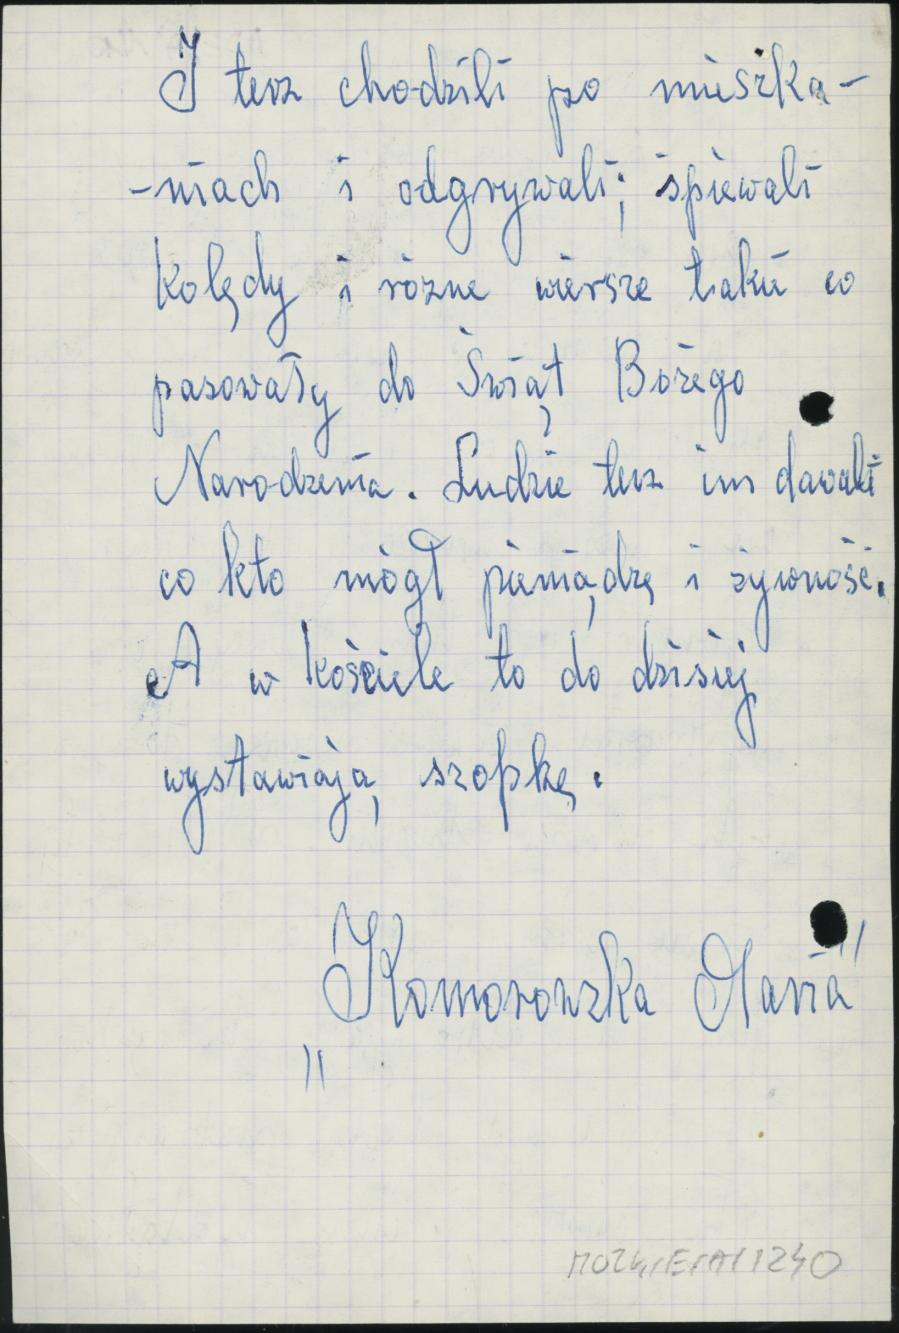 I terz chodzili po mieszka-
-niach i odgrywali; śpiewali
kolędy i rózne wiersze takie co
pasowały do Świąt Bożego
Narodzenia. Ludzie terz im dawali
co kto mógł pieniądzę i zywność.
A w kościele to do dzisiej
wystawiają szopkę.
Komorowska Maria"
"
MOZK/E/A/1240